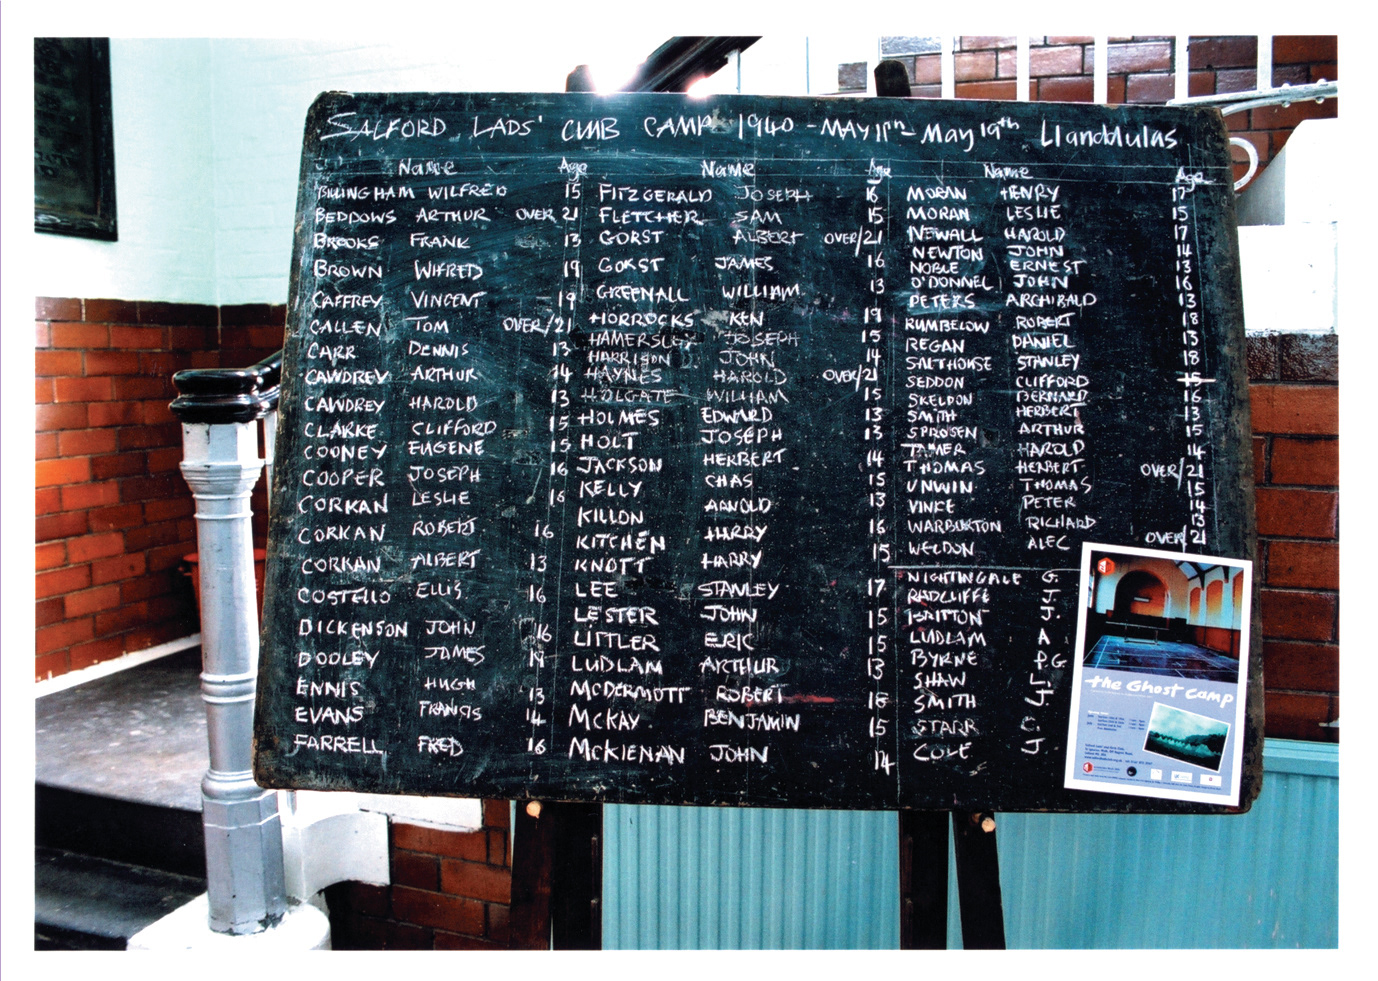 SALFORD LADS' CLUB CAMP 1940 - MAY 11th - May 19th Llanddulas
Name Age
BILLINGHAM WILFRED 15
BEDDOWS ARTHUR OVER 21
BROOKS FRANK 13
BROWN WILFRED 19
CAFFREY VINCENT 19
CALLEN TOM OVER/21
CARR DENNIS 13
CAWDREY ARTHUR 14
CAWDREY HAROLD 13
CLARKE CLIFFORD 15
COONEY EUGENE 15
COOPER JOSEPH 16
CORKAN LESLIE 16
CORKAN ROBERT 16
CORKAN ALBERT 13
COSTELLO ELLIS 16
DICKENSON JOHN 16
DOOLEY JAMES 14
ENNIS HUGH 13
EVANS FRANCIS 14
FARRELL FRED 16
Name Age
FITZGERALD JOSEPH 16
FLETCHER SAM 15
GORST ALBERT OVER/21
GORST JAMES 16
GREENALL WILLIAM 13
HORROCKS KEN 19
HAMERSLEY JOSEPH 15
HARRISON JOHN 14
HAYNES HAROLD OVER/21
HOLGATE WILLIAM 15
HOLMES EDWARD 13
HOLT JOSEPH 13
JACKSON HERBERT 14
KELLY CHAS 15
KILLON ARNOLD 13
KITCHEN HARRY 16
KNOTT HARRY 15
LEE STANLEY 17
LESTER JOHN 15
LITTLER ERIC 15
LUDLAM ARTHUR 13
McDERMOTT ROBERT 16
McKAY BENJAMIN 15
McKIENAN JOHN 14
Name Age
MORAN HENRY 17
MORAN LESLIE 15
NEWALL HAROLD 17
NEWTON JOHN 14
NOBLE ERNEST 13
O'DONNEL JOHN 16
PETERS ARCHIBALD 13
RUMBELOW ROBERT 18
REGAN DANIEL 13
SALTHOUSE STANLEY 18
SEDDON CLIFFORD 15
SKELDON BERNARD 16
SMITH HERBERT 13
SPROSEN ARTHUR 15
TAMER HAROLD 14
THOMAS HERBERT OVER/21
UNWIN THOMAS 15
VINCE PETER 14
WARBURTON RICHARD 13
WELDON ALEC OVER/21
NIGHTINGALE G.
RADCLIFFE J.
BRITTON J.
LUDLAM A
BYRNE P.G
SHAW L.
SMITH J.
STARR C.
COLE J.
the Ghost camp